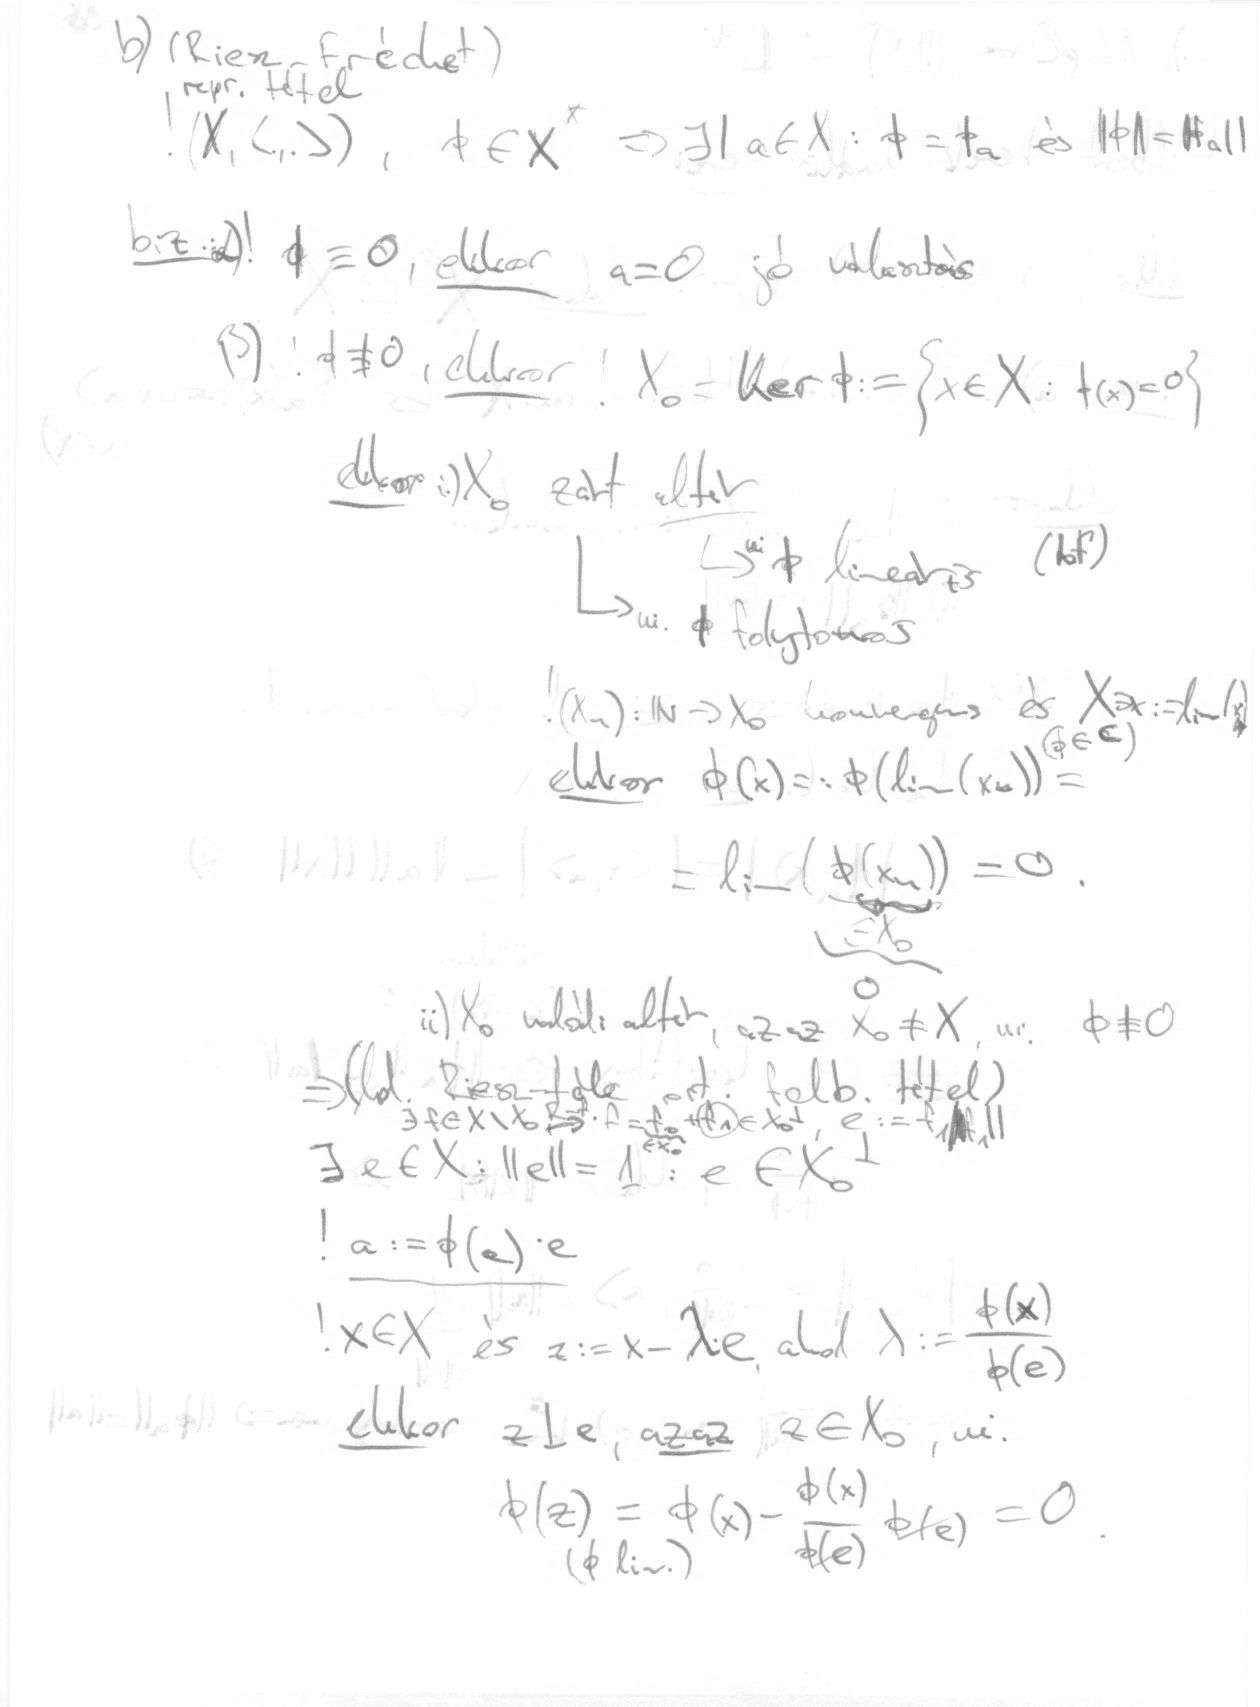 b) (Riesz-Fréchet)
repr. tétel
! (X, <,>), ϕ ∈ X* ⇒ ∃| a ∈ X : ϕ = ϕ_a és ||ϕ|| = ||a||
biz.: α) ! ϕ ≡ 0, ekkor a=0 jó választás
β) ! ϕ ≢ 0, ekkor ! X₀ = Ker ϕ := {x ∈ X : ϕ(x) = 0}
ekkor i) X₀ zárt altér
↳ ui ϕ lineáris (HF)
↳ ui. ϕ folytonos
! (xₙ) : ℕ → X₀ konvergens és X∋x := lim(xₙ)
ekkor ϕ(x) =: ϕ(lim(xₙ)) (ϕ∈C) =
= lim (ϕ(xₙ)) = 0 .
∈X₀
0
ii) X₀ valódi altér, azaz X₀ ≠ X, ui. ϕ ≢ 0
⇒ (ld. Riesz-féle ort. felb. tétel)
∃ f ∈ X \ X₀ f = f₀ + f₁ ∈ X₀^⊥, e := f₁/||f₁||
∈X₀
∃ e ∈ X : ||e|| = 1 : e ∈ X₀^⊥
! a := ϕ(e) · e
! x ∈ X és z := x − λ·e, ahol λ := ϕ(x)/ϕ(e)
ekkor z ⊥ e, azaz z ∈ X₀, ui.
ϕ(z) = ϕ(x) − ϕ(x)/ϕ(e) ϕ(e) = 0 .
(ϕ lin.)